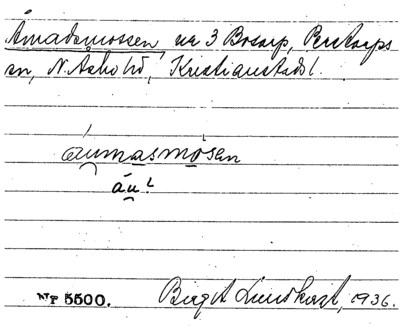 Åmadsmossen nr 3 Bosarp, Perstorps
sn, N. Åsbo hd, Kristianstads l.
áumasmósen
áu?
NR 5500.
Birgit Lundkvist, 1936.